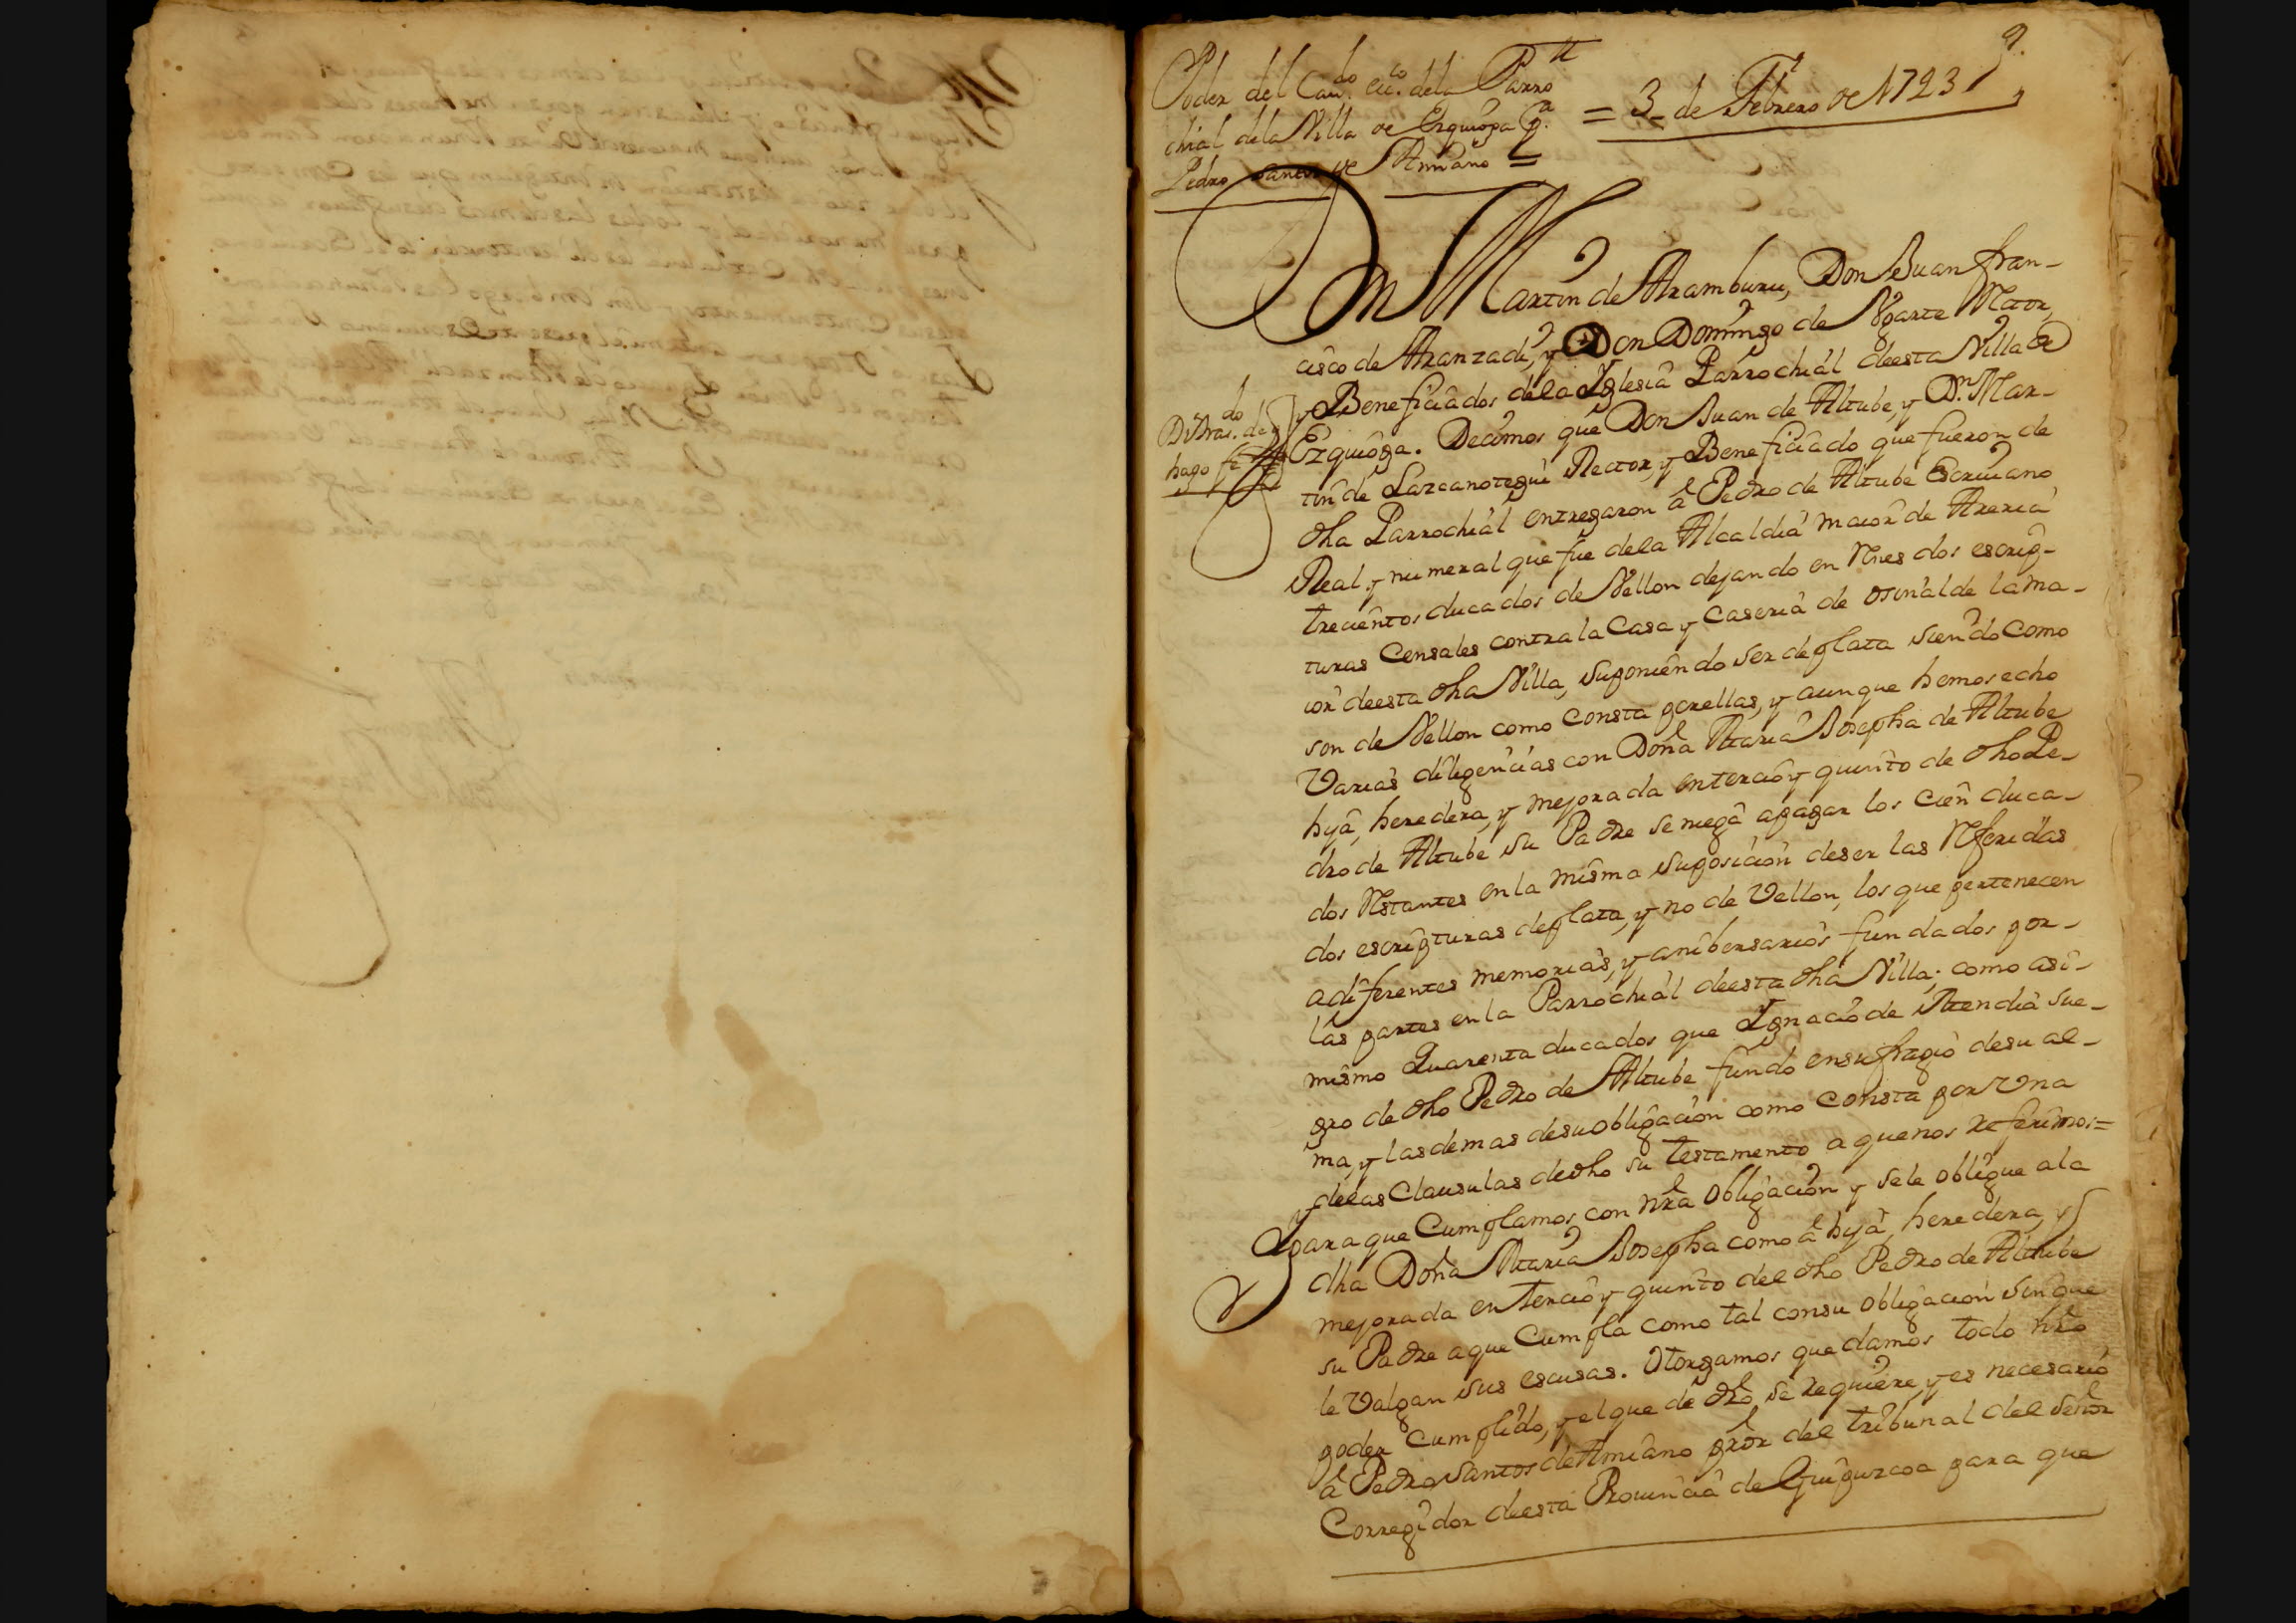 9.
Poder del Cauᵈᵒ. ecᶜᵒ. dela Parro
chial dela Villa de Ezquioga Pᵃ.
Pedro Santos de Amiano =
= 3 de Febrero de 1723
Dn Martin de Aramburu, Don Juan fran-
cisco de Aranzadi, y Don Domingo de Vgarte Rector,
y Beneficiados dela Iglesia Parrochial deesta Villa de
Ezquioga. Decimos que Don Juan de Altube, y Dn. Mar-
tin de Lazcanotegui Rector, y Beneficiado que fueron de
dha Parrochial entregaron â Pedro de Altube Escriuano
Real y numeral que fue dela Alcaldia maior de Areria
trecientos ducados de Vellon dejando en Rnes dos escrip-
turas Censales contra la Casa y Caseria de osinalde la ma-
ior deesta dha Villa, suponiendo ser deplata siendo como
son de Vellon como consta porellas, y aunque hemos echo
Varias diligencias con Doña Maria Josepha de Altube
hija, heredera, y mejorada entercio y quinto de dho Pe-
dro de Altube su Padre se niega apagar los cien duca-
dos Restantes en la misma suposicion deser las Referidas
dos escripturas deplata, y no de Vellon, los que pertenecen
adiferentes memorias, y anibersarios fundados por-
las partes en la Parrochial deesta dha Villa; como asi-
mismo quarenta ducados que Ignacio de Atendia sue-
gro de dho Pedro de Altube fundo ensufragio desu al-
ma, y lasdemas desuobligacion como consta por Vna
delas Clausulas dedho su testamento a quenos referimos=
y para que Cumplamos con nra obligacion y sele obligue ala
dha Doña Maria Josepha como â hija, heredera, y
mejorada en tercio y quinto del dho Pedro de Altube
su Padre aque Cumpla como tal consu obligacion sin que
le Valgan sus escusas. Otorgamos que damos todo nro
poder cumplido, y el que de dro se requiere y es necesario
â Pedro Santos de Amiano pror del tribunal del señor
Corregidor deesta Prouincia de Guipuzcoa para que
Ditrasᵈᵒ. de q
hago fe